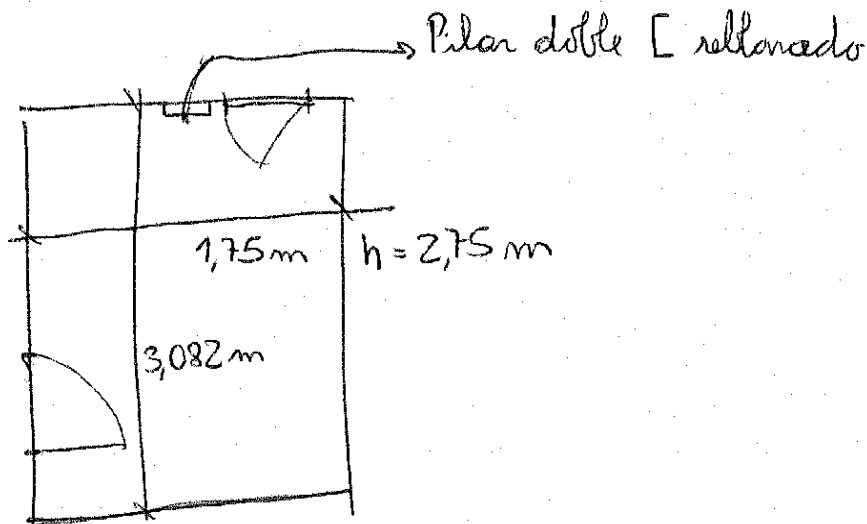 Pilar doble [ rellonado
1,75 m
h = 2,75 m
3,082 m